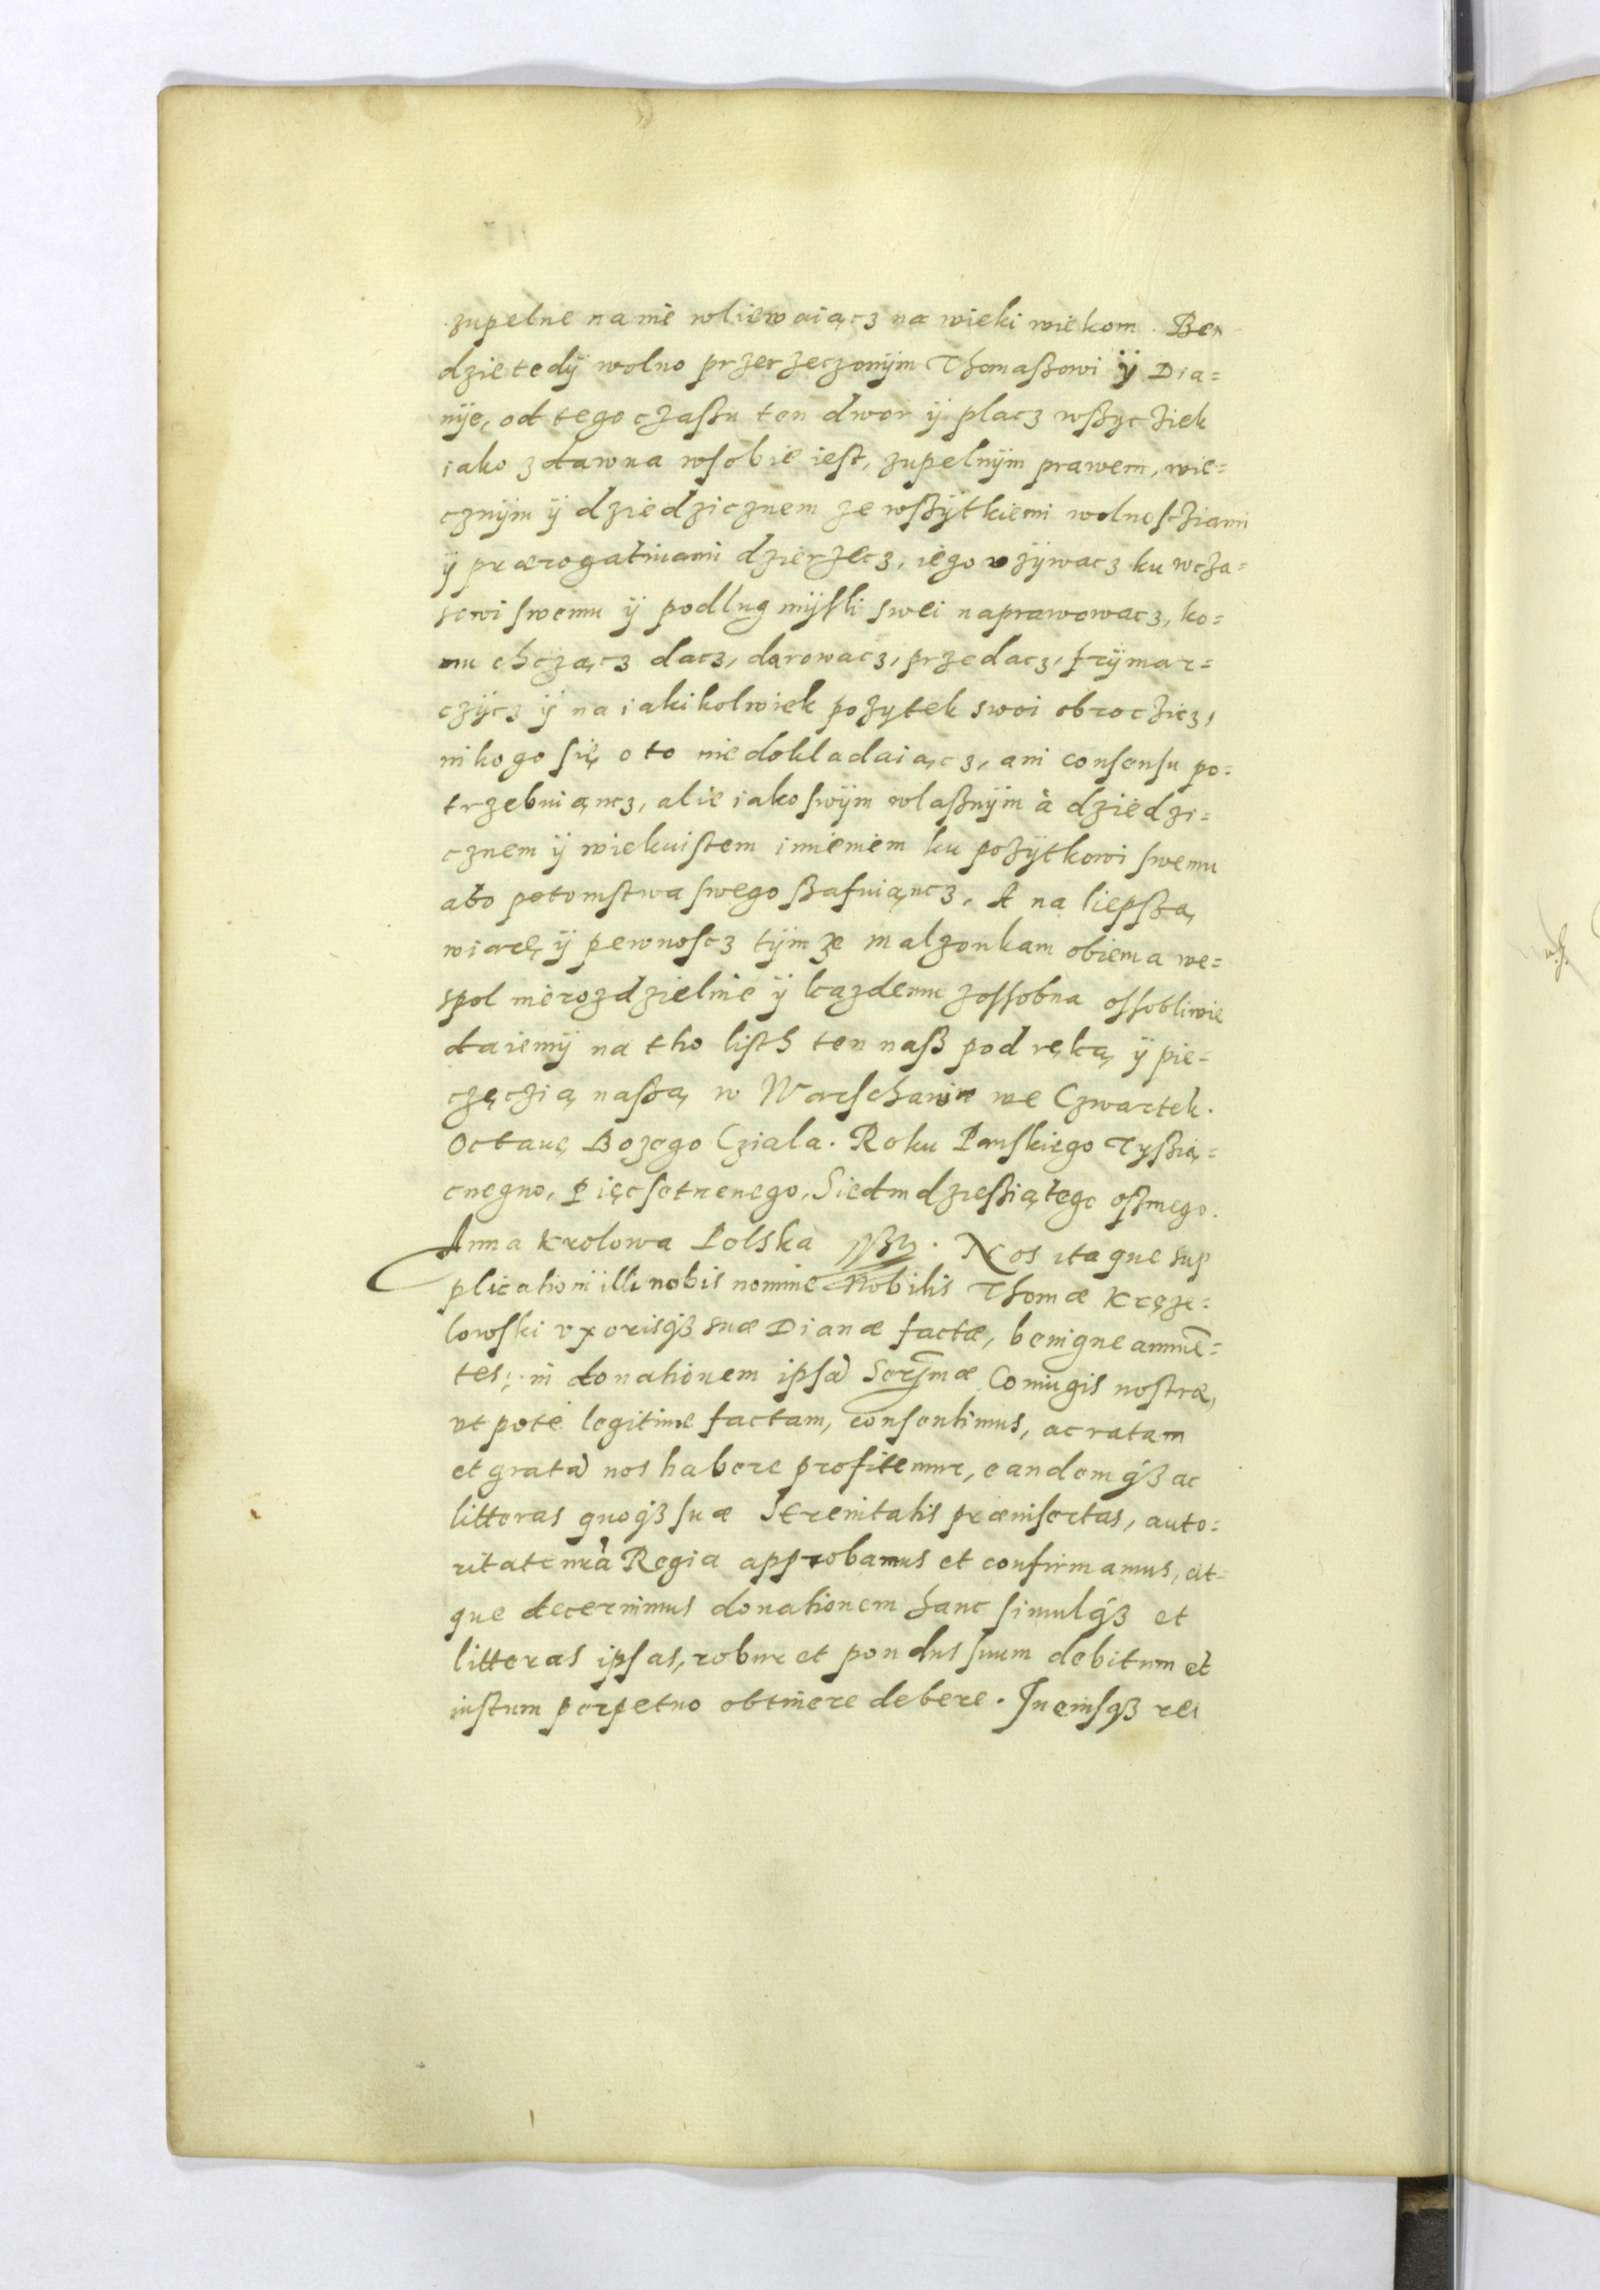 zupelne na nie wliewaiącz na wieki wiekom. Ben
dzie tedÿ wolno przerzeczonÿm Thomaßowi ÿ Dia=
nÿe, od tego czaßu ten dwor ÿ placz wßycziek
iako zdawna wsobie iest, zupelnÿm prawem, wie=
cznÿm ÿ dziedzicznem ze wßÿtkiemi wolnoscziami
ÿ prærogatiuami dzierzecz, iego vzÿwacz ku wcza=
sowi swemu ÿ podlug mÿsli swei naprawowacz, ko=
mu chczącz dacz, darowacz, przedacz, frÿmar=
czÿcz ÿ na iakikolwiek pozytek swoi obroczicz,
nikogo się o to niedokladaiącz, ani consensu po=
trzebuiąncz, alie iako swÿm wlaßnÿm à dziedzi=
cznem ÿ wiekuistem imieniem ku pozÿtkowi swemu
abo potomstwa swego ßafuiąncz. A na liepßą
wiarę ÿ pewnoscz tÿm ze malzonkam obiema we=
spol nierozdzielnie ÿ kazdemu zossobna ossobliwie
daiemÿ na tho listh ten naß pod ręką ÿ pie=
częczią naßą w Warschawie we Czwartek.
Octauę Bozego Cziala. Roku Panskiego Tyßią=
cnegno, Pięcsetnenego, Siedmdzießiątego oßmego.
Anna Krolowa Polska. Nos itaque sup
plicationi illi nobis nomine Nobilis Thomæ Kręze=
lowski vxorisqȝ suæ Dianæ factæ, benigne annuē=
tes, in donationem ipsã Serīmæ Coniugis nostræ,
vt pote legitime factam, consentimus, ac ratam
et gratã nos habere profitemur, eandemqȝ ac
litteras quoqȝ suæ Serenitatis præinsertas, auto=
ritate nrã Regia approbamus et confirmamus, at=
que decernimus donationem hanc simulqȝ et
litteras ipsas, robur et pondus suum debitum et
iustum perpetuo obtinere debere. In eiusqȝ rei